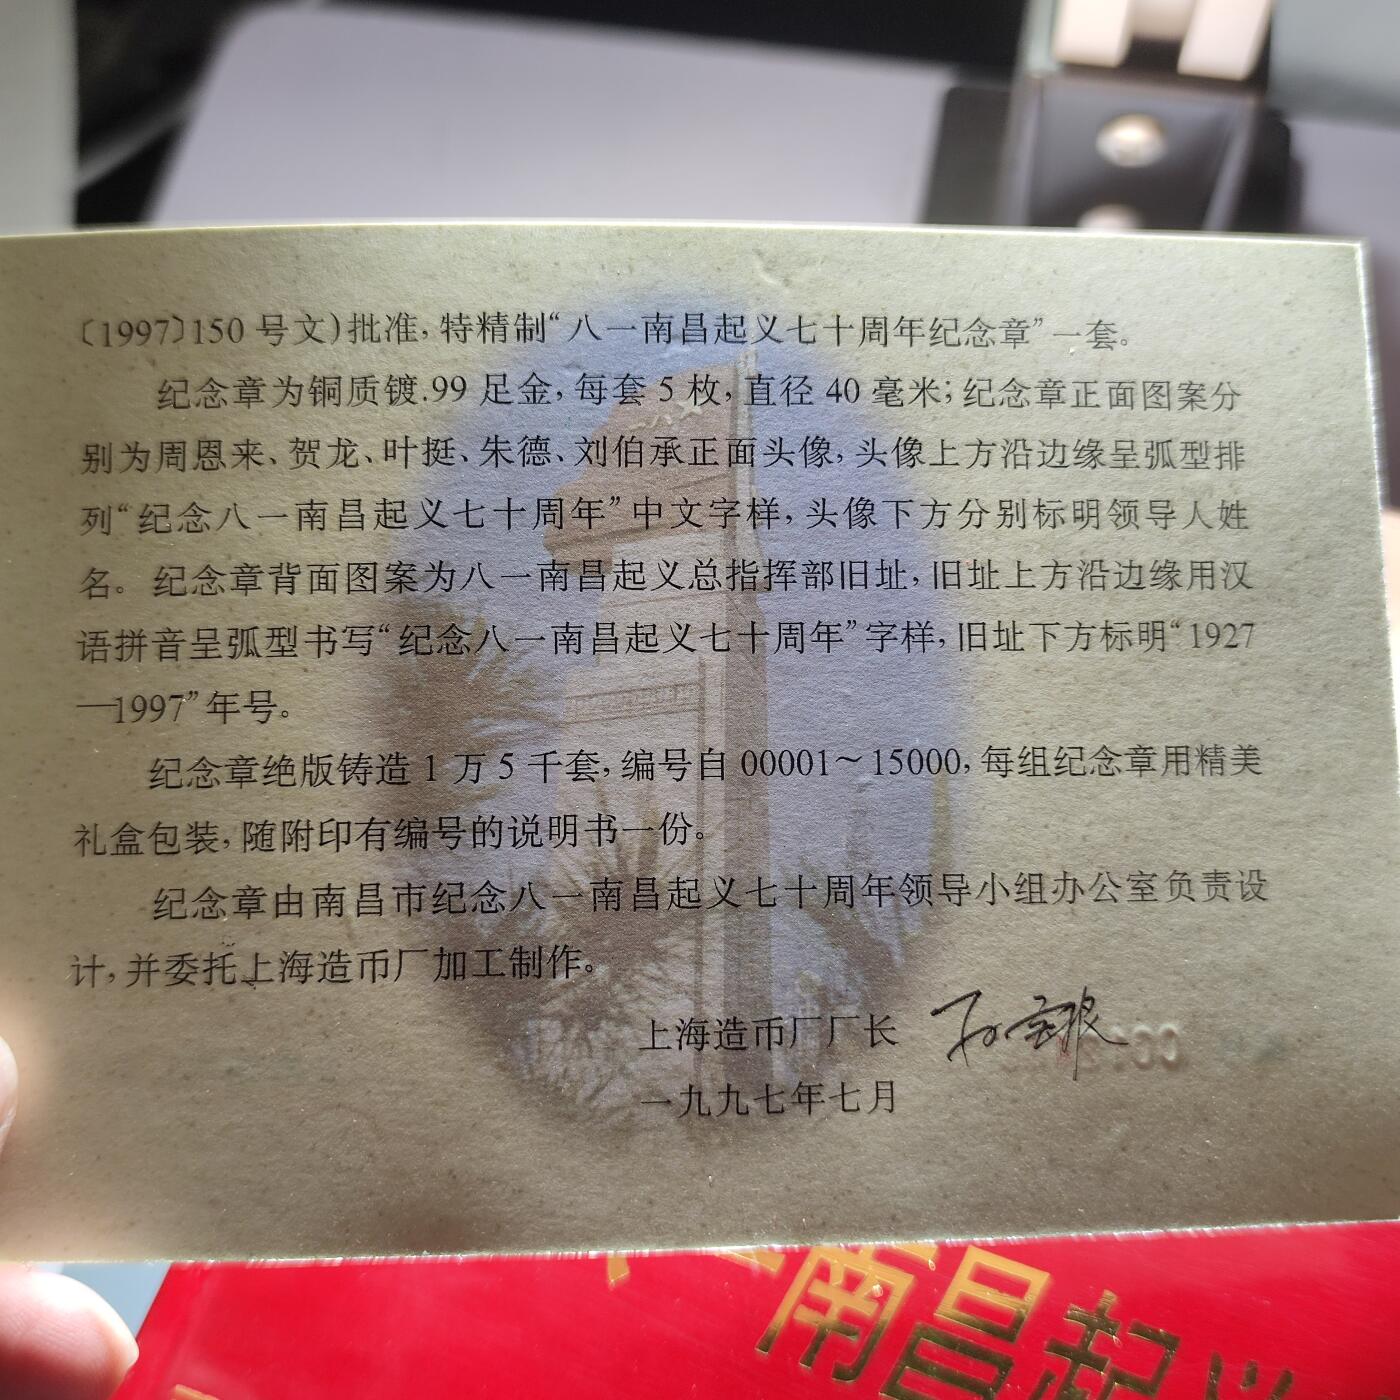 〔1997〕150 号文)批准,特精制“八一南昌起义七十周年纪念章”一套。
纪念章为铜质镀.99 足金,每套 5 枚,直径 40 毫米;纪念章正面图案分
别为周恩来、贺龙、叶挺、朱德、刘伯承正面头像,头像上方沿边缘呈弧型排
列“纪念八一南昌起义七十周年”中文字样,头像下方分别标明领导人姓
名。纪念章背面图案为八一南昌起义总指挥部旧址,旧址上方沿边缘用汉
语拼音呈弧型书写“纪念八一南昌起义七十周年”字样,旧址下方标明“1927
—1997”年号。
纪念章绝版铸造 1 万 5 千套,编号自 00001～15000,每组纪念章用精美
礼盒包装,随附印有编号的说明书一份。
纪念章由南昌市纪念八一南昌起义七十周年领导小组办公室负责设
计,并委托上海造币厂加工制作。
上海造币厂厂长
一九九七年七月
南昌起义